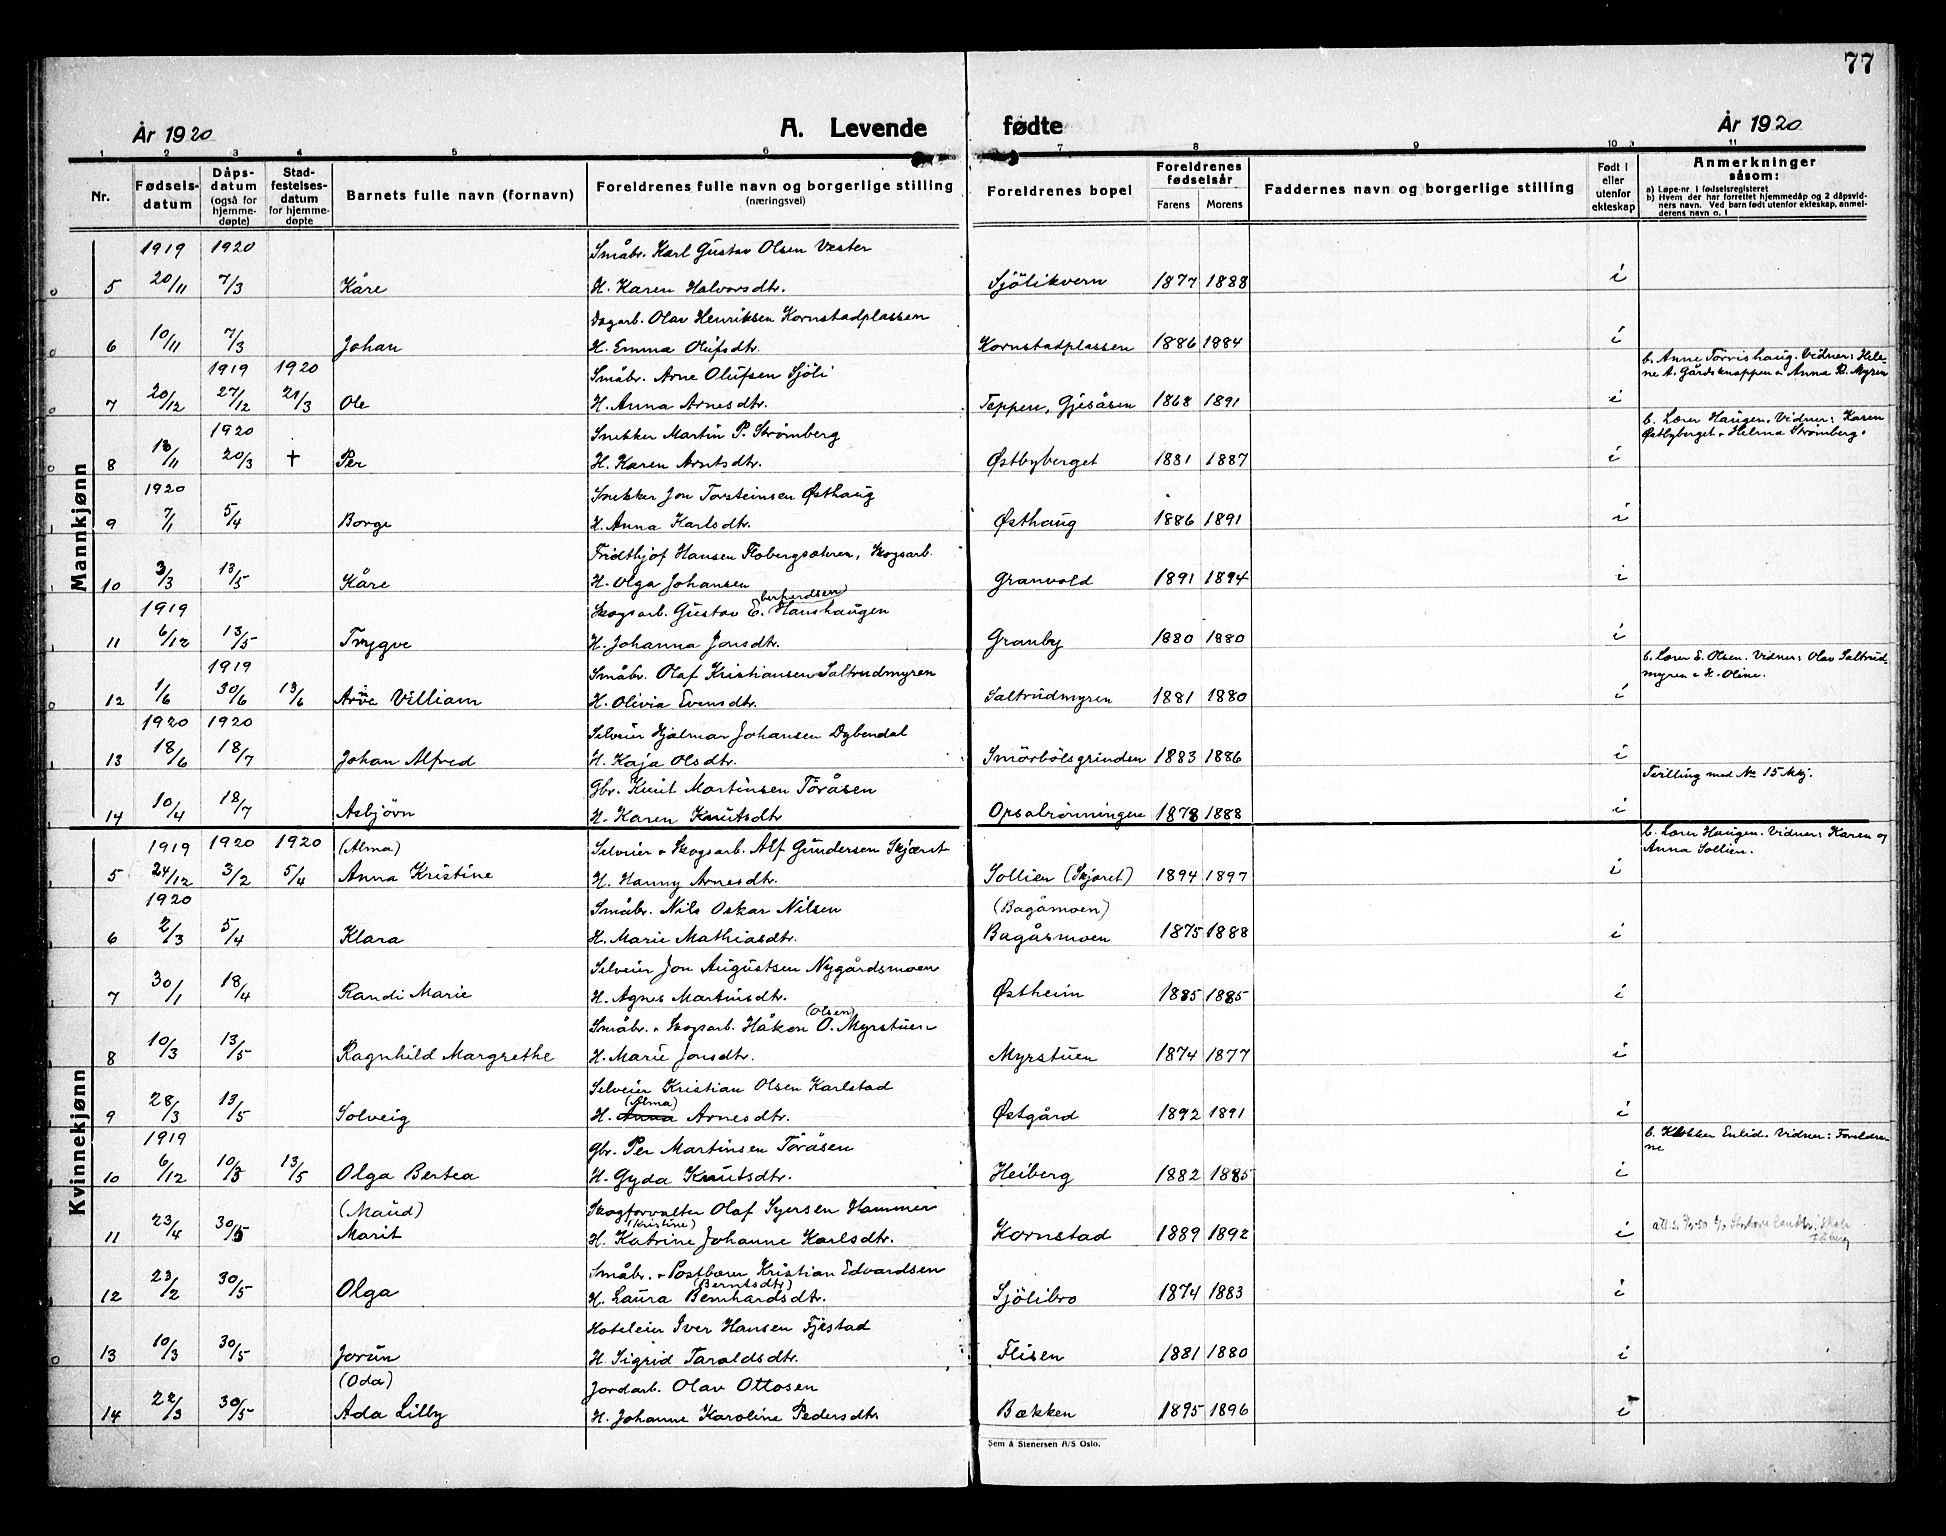 77
År 1920 A. Levende fødte År 1920
1 2 3 4 5 6 7 8 9 10 11
Nr. Fødsels-datum Dåps-datum (også for hjemme-døpte) Stad-festelses-datum for hjemme-døpte Barnets fulle navn (fornavn) Foreldrenes fulle navn og borgerlige stilling (næringsvei) Foreldrenes bopel Foreldrenes fødselsår Farens Morens Faddernes navn og borgerlige stilling Født i eller utenfor ekteskap Anmerkninger såsom:
a) Løpe-nr. i fødselsregisteret
b) Hvem der har forrettet hjemmedåp og 2 dåpsvid-
ners navn. Ved barn født utenfor ekteskap, anmel-
derens navn o. l
Mannkjønn
1919 1920 Småbr. Karl Gustav Olsen Vester
5 20/11 7/3 Kåre H. Karen Halvorsdtr. Sjölikvern 1877 1888 i
Dagarb. Olav Henriksen Kornstadplassen
6 10/11 7/3 Johan H. Emma Olufsdtr. Kornstadplassen 1886 1884 i
1919 1920 Småbr. Arne Olufsen Sjöli b. Anne Törrishaug. Vidner: Hele-
ne A. Gårdsknappen & Anna R. Myren
7 20/12 27/12 21/3 Ole H. Anna Arnesdtr. Teppen, Gjesåsen 1868 1891 i
1920 Snekker Martin P. Strømberg b. Lærer Haugen. Vidner: Karen
Østbyberget & Helma Strømberg.
8 18/11 20/3 † Per H. Karen Arntsdtr. Østbyberget 1881 1887 i
1920 Snekker Jon Torsteinsen Østhaug
9 7/1 5/4 Borge H. Anna Karlsdtr. Østhaug 1886 1891 i
Fridthjof Hansen Flobergsætren, Skogsarb.
10 3/3 13/5 Kåre H. Olga Johansen Granvold 1891 1894 i
1919 Skogsarb. Gustav E. (berhardsen) Hanshaugen
11 6/12 13/5 Trygve H. Johanna Jonsdtr. Granby 1880 1880 i
1919 Småbr. Olaf Kristiansen Saltrudmyren b. Lærer E. Olsen. Vidner: Olav Saltrud-
myren & H. Oline.
12 1/6 30/6 13/6 Arve Villiam H. Olivia Evensdtr. Saltrudmyren 1881 1880 i
1920 1920 Selveier Hjalmar Johansen Dybendal
13 18/6 18/7 Johan Alfred H. Kaja Olsdtr. Smörbölsgrinden 1883 1886 i
Gbr. Knut Martinsen Töråsen Tvilling med No 15 Mkj.
14 10/4 18/7 Asbjörn H. Karen Knutsdtr Opsalrönningen 1878 1888 i
Kvinnekjønn
1919 1920 1920 (Alma) Selveier & Skogsarb. Alf Gundersen Skjæret b. Lærer Haugen. Vidner: Karen og
Anna Sollien.
5 24/12 3/2 5/4 Anna Kristine H. Hanny Arnesdtr. Sollien (Skjæret) 1894 1897 i
1920 Småbr. Nils Oskar Nilsen (Bagåmoen)
6 2/3 5/4 Klara H. Marie Mathiasdtr. Bagåsmoen 1875 1888 i
Selveier Jon Augustsen Nygårdsmoen
7 30/1 18/4 Randi Marie H. Agnes Martinsdtr. Østheim 1885 1885 i
Småbr. & Skogsarb. Håkon O. (Olsen) Myrstuen
8 10/3 13/5 Ragnhild Margrethe H. Marie Jonsdtr. Myrstuen 1874 1877 i
Selveier Kristian Olsen Karlstad
9 28/3 13/5 Solveig H. Anna (Alma) Arnesdtr. Østgård 1892 1891 i
1919 Gbr. Per Martinsen Töråsen b. Klokker Enlid. Vidner: Foreldre-
ne
10 6/12 10/3 13/5 Olga Bertea H. Gyda Knutsdtr. Heiberg 1882 1885 i
(Maud) Skogforvalter Olaf Syersen Hammer
11 23/4 30/5 Marit H. Katrine (Kristine) Johanne Karlsdtr. Kornstad 1889 1892 i
Småbr. & Postbærer Kristian Edvardsen
12 23/2 30/5 Olga H. Laura Bernhardsdtr. (Berntsdtr) Sjölibro 1874 1883 i
Hoteleier Iver Hansen Fjestad
13 10/3 30/5 Jorun H. Sigrid Taraldsdtr. Flisen 1881 1880 i
(Oda) Jordarb. Olav Ottosen
14 22/3 30/5 Ada Lilby H. Johanne Karoline Pedersdtr Bækken 1895 1896 i
Sem & Stenersen A/S Oslo.